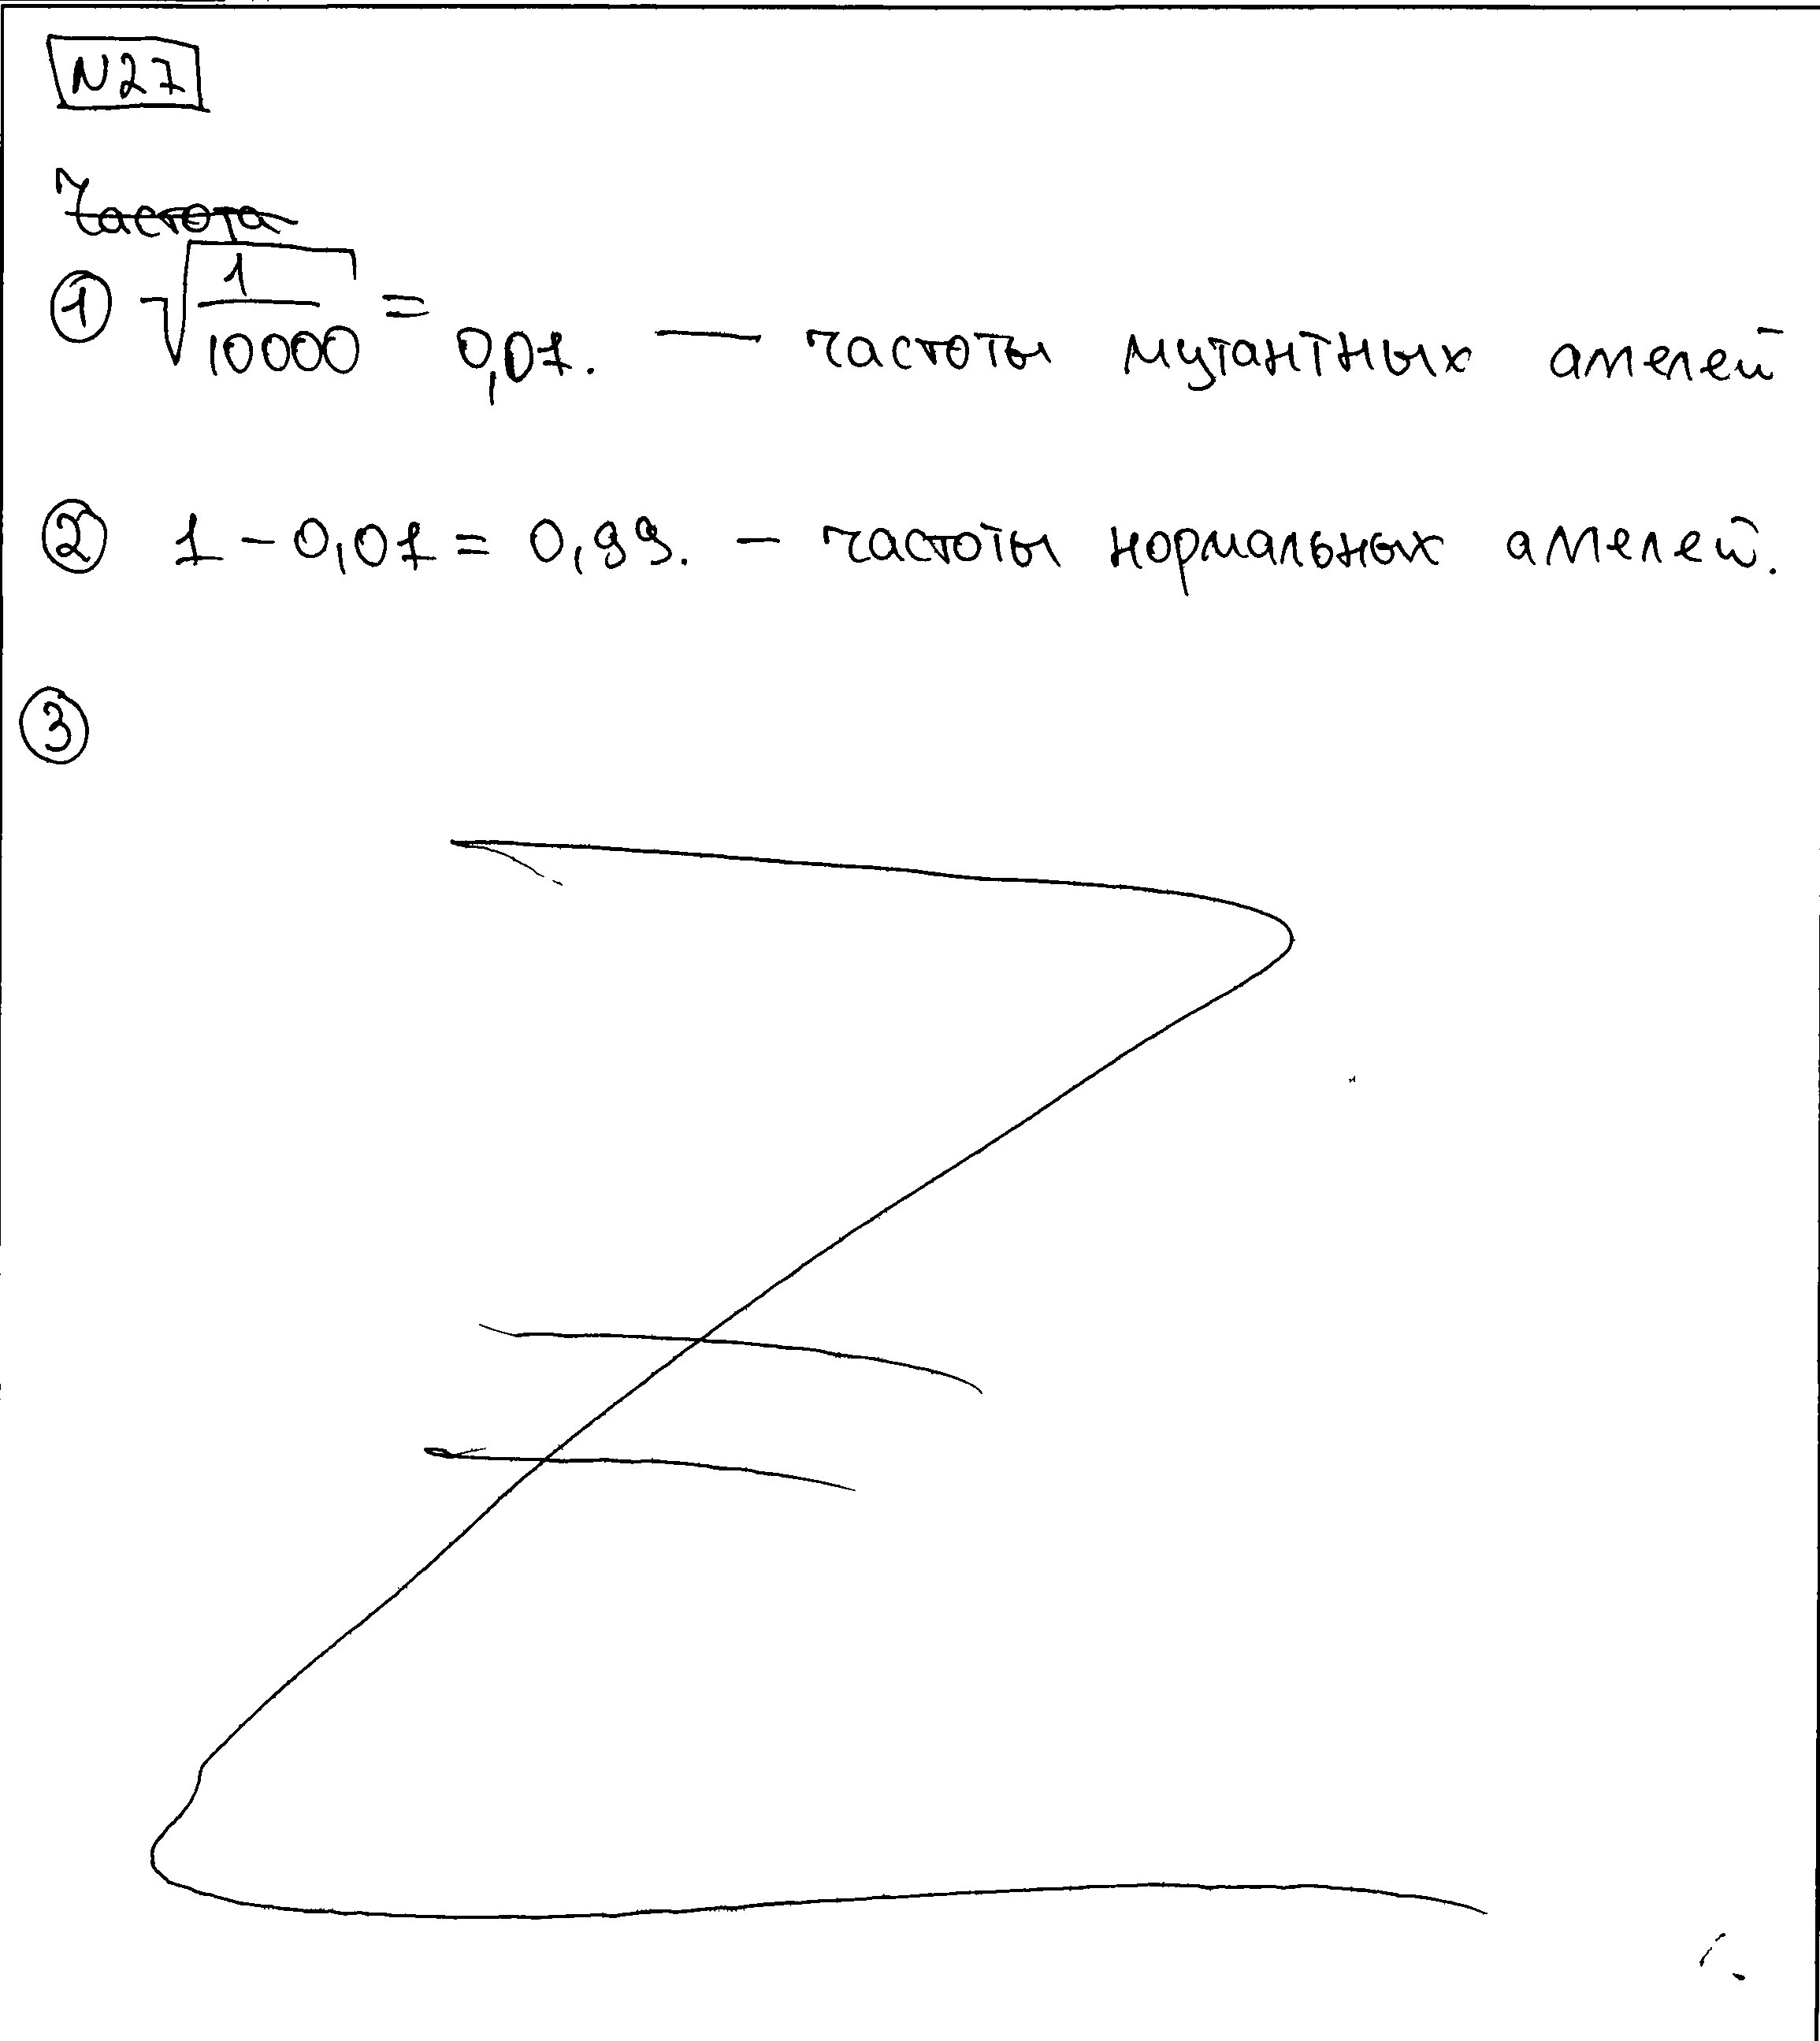 N27
Частота
① √1/10000 = 0,01. — частоты мутантных аллелей
② 1 - 0,01 = 0,99. - частоты нормальных аллелей.
③